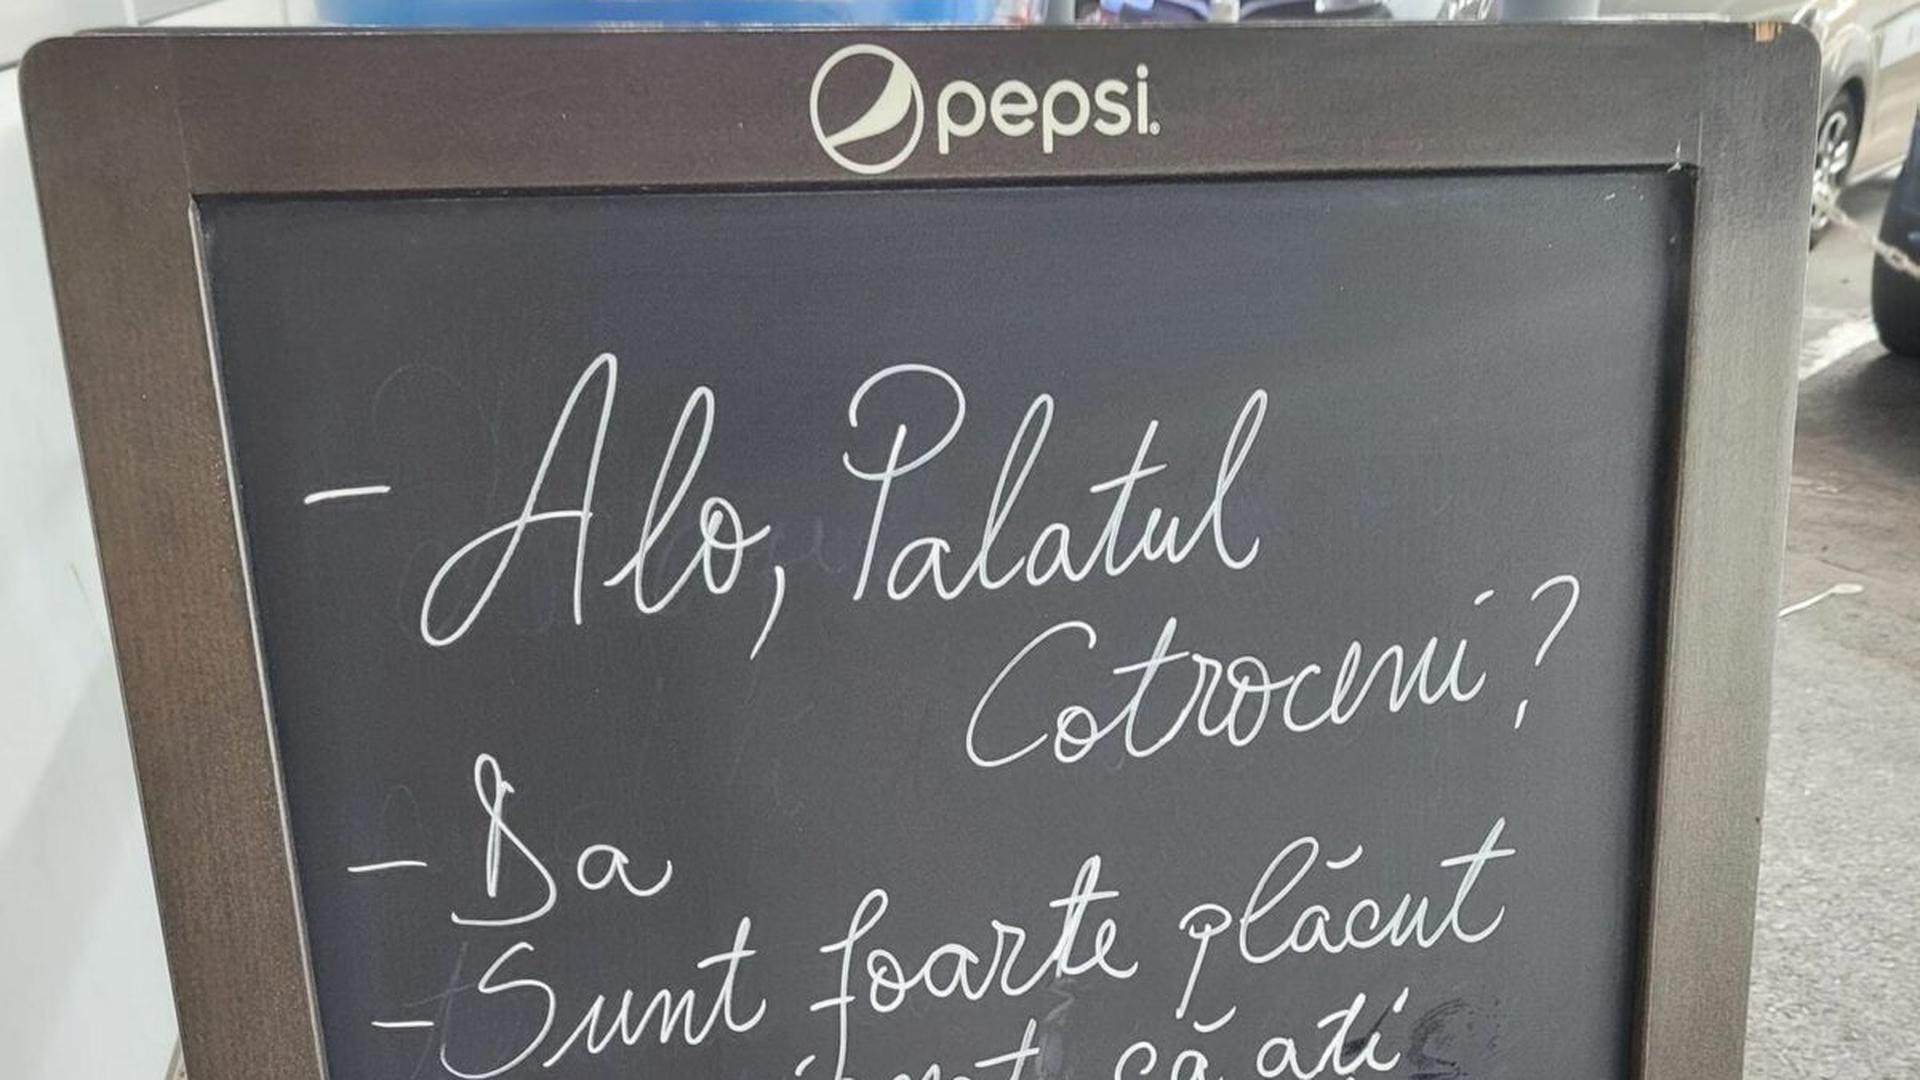 pepsi.
- Alo, Palatul
Cotroceni?
- Da
- Sunt foarte plăcut
că ați